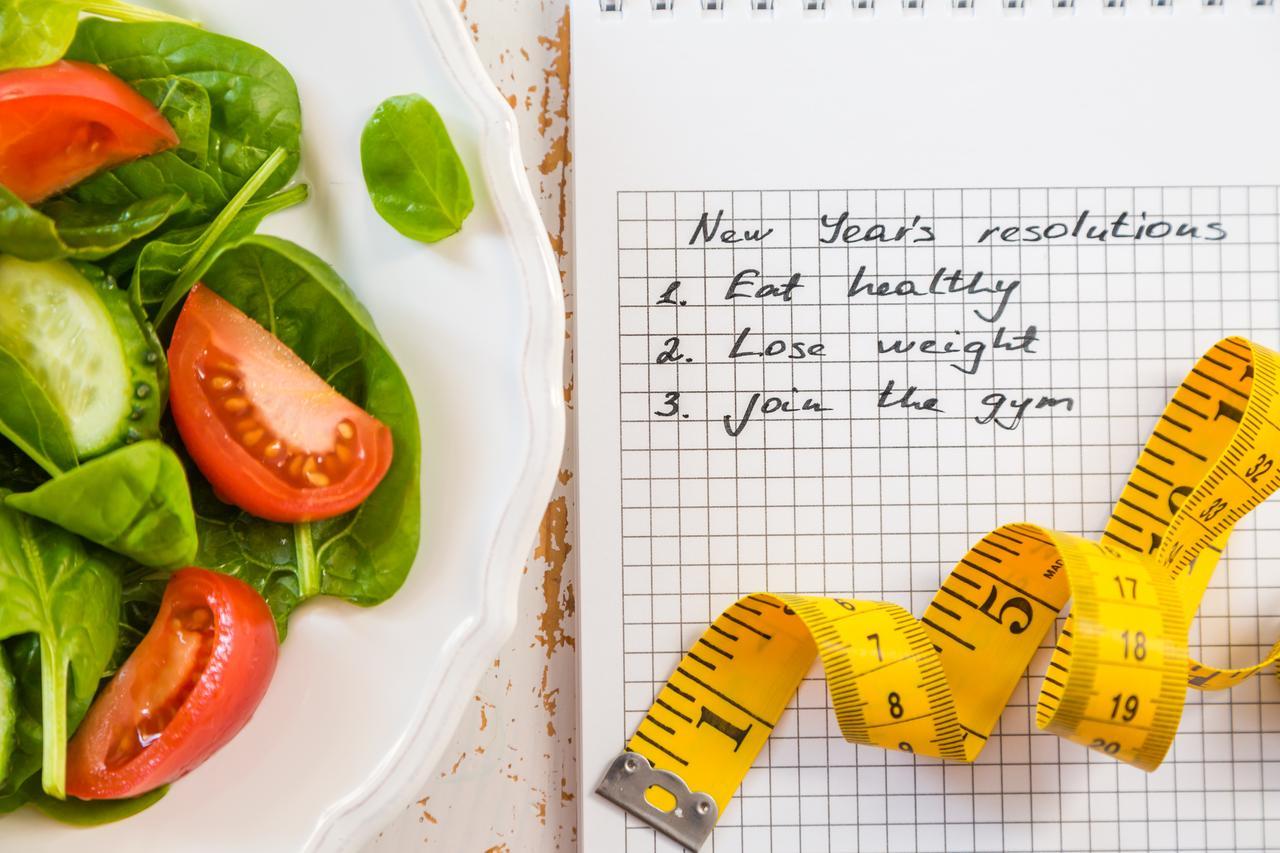 New Year's resolutions
1. Eat healthy
2. Lose weight
3. Join the gym
32
33
MAD
5
17
6
7
18
8
1
19
9
20